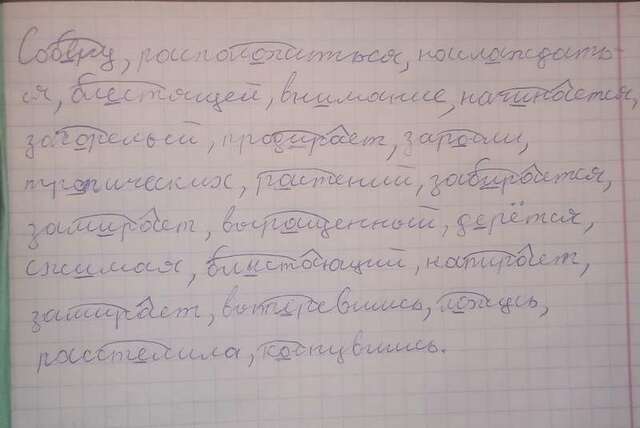 Соберу, расположиться, наслаждать-
ся, блестящей, внимание, начинается,
загорелый, продирает, заросли,
тропических, растений, забирается,
замирает, выращенный, дерётся,
сжимая, блистающий, натирает,
замирает, вытеревшись, ложусь,
расстелила, коснувшись.